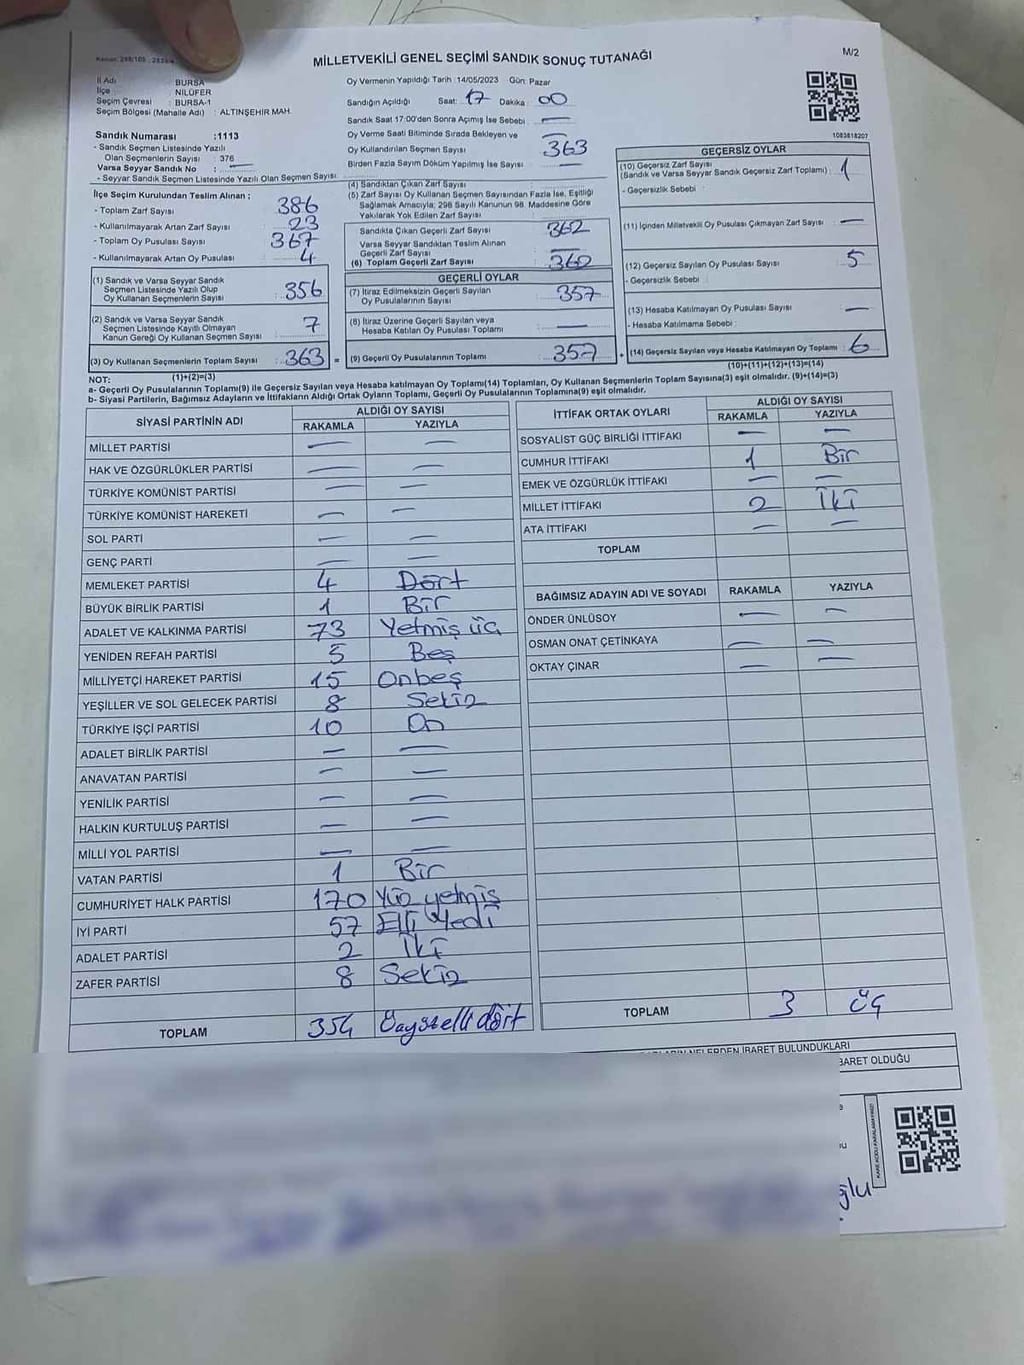 MİLLETVEKİLİ GENEL SEÇİMİ SANDIK SONUÇ TUTANAĞI
M/2
İl Adı : BURSA
İlçe : NİLÜFER
Seçim Çevresi : BURSA-1
Seçim Bölgesi (Mahalle Adı) : ALTINŞEHİR MAH.
Sandık Numarası :1113
- Sandık Seçmen Listesinde Yazılı
Olan Seçmenlerin Sayısı : 376
Varsa Seyyar Sandık No : —
- Seyyar Sandık Seçmen Listesinde Yazılı Olan Seçmen Sayısı
Oy Vermenin Yapıldığı Tarih :14/05/2023 Gün: Pazar
Sandığın Açıldığı Saat: 17 Dakika : 00
Sandık Saat 17:00'den Sonra Açımış İse Sebebi : —
Oy Verme Saati Bitiminde Sırada Bekleyen ve —
Oy Kullandırılan Seçmen Sayısı : 363
Birden Fazla Sayım Döküm Yapılmış İse Sayısı : —
1083818207
İlçe Seçim Kurulundan Teslim Alınan ;
- Toplam Zarf Sayısı : 386
- Kullanılmayarak Artan Zarf Sayısı : 23
- Toplam Oy Pusulası Sayısı : 367
- Kullanılmayarak Artan Oy Pusulası : 4
(1) Sandık ve Varsa Seyyar Sandık
Seçmen Listesinde Yazılı Olup
Oy Kullanan Seçmenlerin Sayısı : 356
(2) Sandık ve Varsa Seyyar Sandık
Seçmen Listesinde Kayıtlı Olmayan
Kanun Gereği Oy Kullanan Seçmen Sayısı : 7
(3) Oy Kullanan Seçmenlerin Toplam Sayısı : 363 =
(1)+(2)=(3)
(4) Sandıktan Çıkan Zarf Sayısı
(5) Zarf Sayısı Oy Kullanan Seçmen Sayısından Fazla İse, Eşitliği
Sağlamak Amacıyla; 298 Sayılı Kanunun 98. Maddesine Göre
Yakılarak Yok Edilen Zarf Sayısı :
Sandıkta Çıkan Geçerli Zarf Sayısı : 362
Varsa Seyyar Sandıktan Teslim Alınan
Geçerli Zarf Sayısı : —
(6) Toplam Geçerli Zarf Sayısı : 362
GEÇERLİ OYLAR
(7) İtiraz Edilmeksizin Geçerli Sayılan
Oy Pusulalarının Sayısı : 357
(8) İtiraz Üzerine Geçerli Sayılan veya
Hesaba Katılan Oy Pusulası Toplamı : —
(9) Geçerli Oy Pusulalarının Toplamı : 357 +
GEÇERSİZ OYLAR
(10) Geçersiz Zarf Sayısı
(Sandık ve Varsa Seyyar Sandık Geçersiz Zarf Toplamı) : 1
- Geçersizlik Sebebi :
(11) İçinden Milletvekili Oy Pusulası Çıkmayan Zarf Sayısı : —
(12) Geçersiz Sayılan Oy Pusulası Sayısı : 5
- Geçersizlik Sebebi :
(13) Hesaba Katılmayan Oy Pusulası Sayısı : —
- Hesaba Katılmama Sebebi :
(14) Geçersiz Sayılan veya Hesaba Katılmayan Oy Toplamı : 6
(10)+(11)+(12)+(13)=(14)
NOT:
a- Geçerli Oy Pusulalarının Toplamı(9) ile Geçersiz Sayılan veya Hesaba katılmayan Oy Toplamı(14) Toplamları, Oy Kullanan Seçmenlerin Toplam Sayısına(3) eşit olmalıdır. (9)+(14)=(3)
b- Siyasi Partilerin, Bağımsız Adayların ve İttifakların Aldığı Ortak Oyların Toplamı, Geçerli Oy Pusulalarının Toplamına(9) eşit olmalıdır.
SİYASİ PARTİNİN ADI ALDIĞI OY SAYISI
RAKAMLA YAZIYLA
MİLLET PARTİSİ — —
HAK VE ÖZGÜRLÜKLER PARTİSİ — —
TÜRKİYE KOMÜNİST PARTİSİ — —
TÜRKİYE KOMÜNİST HAREKETİ — —
SOL PARTİ — —
GENÇ PARTİ — —
MEMLEKET PARTİSİ 4 Dört
BÜYÜK BİRLİK PARTİSİ 1 Bir
ADALET VE KALKINMA PARTİSİ 73 Yetmiş üç
YENİDEN REFAH PARTİSİ 5 Beş
MİLLİYETÇİ HAREKET PARTİSİ 15 Onbeş
YEŞİLLER VE SOL GELECEK PARTİSİ 8 Sekiz
TÜRKİYE İŞÇİ PARTİSİ 10 On
ADALET BİRLİK PARTİSİ — —
ANAVATAN PARTİSİ — —
YENİLİK PARTİSİ — —
HALKIN KURTULUŞ PARTİSİ — —
MİLLİ YOL PARTİSİ — —
VATAN PARTİSİ 1 Bir
CUMHURİYET HALK PARTİSİ 170 Yüz yetmiş
İYİ PARTİ 57 Elli Yedi
ADALET PARTİSİ 2 İki
ZAFER PARTİSİ 8 Sekiz
TOPLAM 354 Üçyüzelli dört
İTTİFAK ORTAK OYLARI ALDIĞI OY SAYISI
RAKAMLA YAZIYLA
SOSYALİST GÜÇ BİRLİĞİ İTTİFAKI — —
CUMHUR İTTİFAKI 1 Bir
EMEK VE ÖZGÜRLÜK İTTİFAKI — —
MİLLET İTTİFAKI 2 İki
ATA İTTİFAKI — —
TOPLAM
BAĞIMSIZ ADAYIN ADI VE SOYADI RAKAMLA YAZIYLA
ÖNDER ÜNLÜSOY — —
OSMAN ONAT ÇETİNKAYA — —
OKTAY ÇINAR — —
TOPLAM 3 üç
İBARET BULUNDUKLARI
OLDUĞU